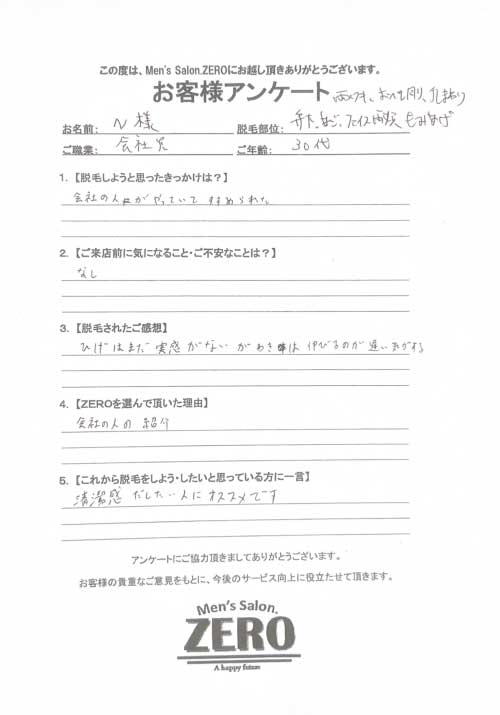 この度は、Men's Salon.ZEROにお越し頂きありがとうございます。
お客様アンケート 両ワキ、おへそ周り、乳まわり
お名前: N 様 脱毛部位: 鼻下、あご、フェイス両頬、もみあげ
ご職業: 会社員 ご年齢: 30代
1. 【脱毛しようと思ったきっかけは?】
会社の人がやっていて すすめられた
2. 【ご来店前に気になること・ご不安なことは?】
なし
3. 【脱毛されたご感想】
ひげはまだ 実感がない が わきは 伸びるのが 遅い気がする
4. 【ZEROを選んで頂いた理由】
会社の人の 紹介
5. 【これから脱毛をしよう・したいと思っている方に一言】
清潔感 だしたい人に オススメです
アンケートにご協力頂きましてありがとうございます。
お客様の貴重なご意見をもとに、今後のサービス向上に役立たせて頂きます。
Men's Salon.
ZERO
A happy future